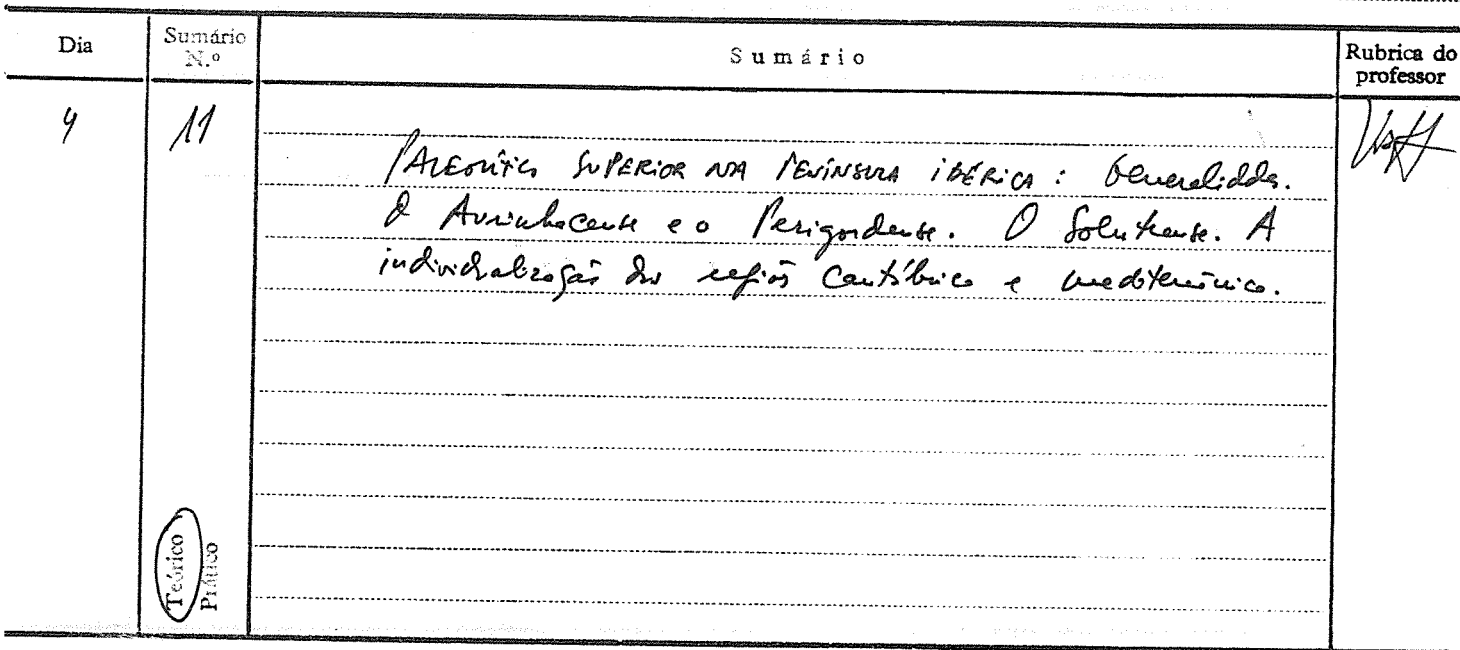 Dia
Sumário N.º
Sumário
Rubrica do professor
4
11
PALEOLÍTICO SUPERIOR NA PENÍNSULA IBÉRICA: Generalidades.
O Aurinhacense e o Perigordense. O Solutrense. A
individualização das regiões cantábrica e mediterrânica.
Teórico
Prático